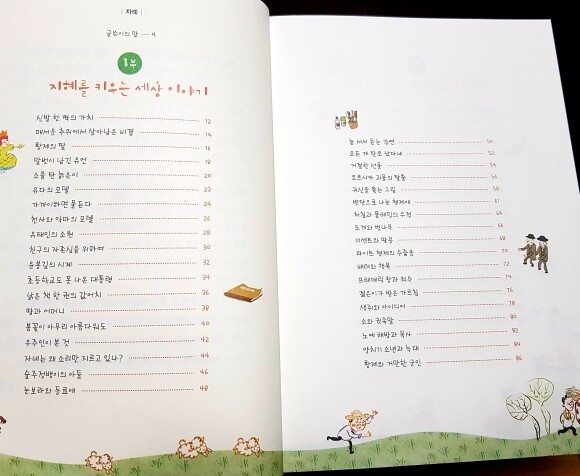 차례
글쓴이의 말 ··· 4
1부
지혜를 키우는 세상 이야기
신발 한 짝의 가치 12
매서운 추위에서 살아남은 비결 14
황제의 딸 16
말벗이 남긴 유언 18
소를 탄 늙은이 20
유다의 모델 22
가까이하면 물든다 24
천사와 악마의 모델 26
유태인의 소원 28
친구의 자존심을 위하여 30
윤봉길의 시계 32
초등학교도 못 나온 대통령 34
낡은 책 한 권의 값어치 36
딸과 어머니 38
봄꽃이 아무리 아름다워도 40
우주인이 본 것 42
자네는 왜 소리만 지르고 있나? 44
술주정뱅이의 아들 46
눈보라와 동료애 48
눈 서서 듣는 강연 50
모든 게 탄로 났다네 52
거절한 선물 54
코르시카 괴물의 탈출 56
귀신을 쫓는 그림 58
반장으로 나눈 형제애 61
처칠과 플레밍의 우정 64
도끼와 벚나무 66
이센트와 땅콩 68
라이트 형제의 수줍음 70
배려와 행복 72
프레데릭 왕과 죄수 74
젊은이가 받은 가르침 76
생쥐와 아이디어 78
소와 귓속말 80
노예 해방과 목사 82
양치기 소년과 늑대 84
황제와 거만한 군인 86